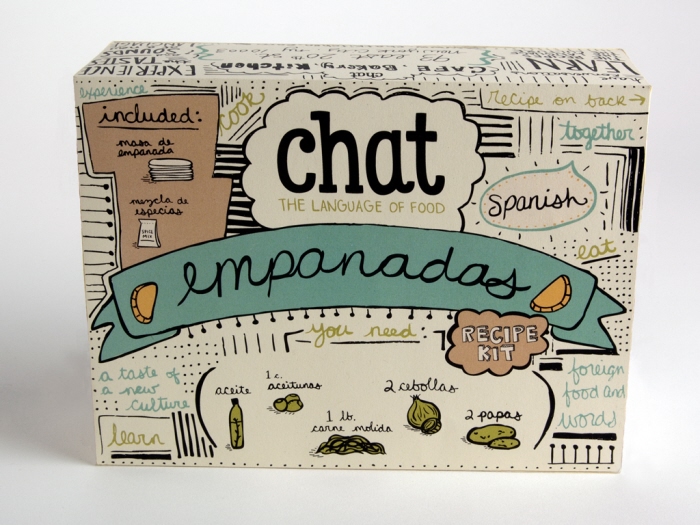 EXPERIENCE
the TASTES
SOUNDS
CAFE • Bakery • Kitchen
chat
LEARN
experience
cook
recipe on back →
included:
masa de
empanada
mezcla de
especias
SPICE
MIX
chat
THE LANGUAGE OF FOOD
together
Spanish
eat
empanadas
you need:
RECIPE
KIT
a taste of
a new
culture
learn
aceite
1 c.
aceitunas
1 lb.
carne molida
2 cebollas
2 papas
foreign
food and
words